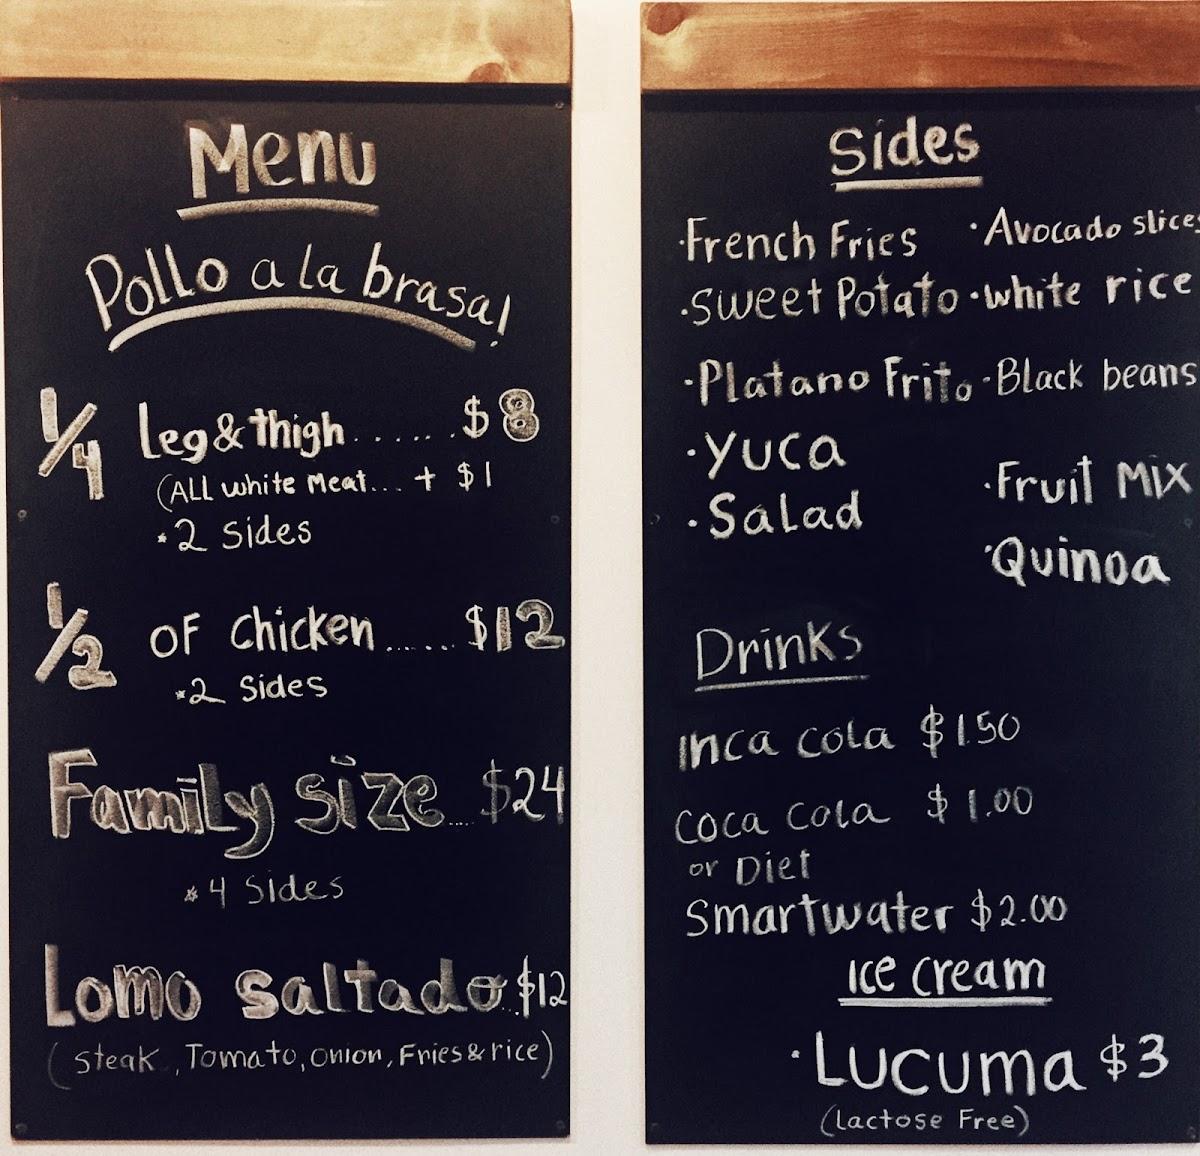 Menu
Pollo a la brasa!
1/4 Leg & thigh.......$8
(ALL white Meat... + $1
*2 Sides
1/2 OF Chicken.......$12
*2 Sides
Family size....$24
*4 Sides
Lomo saltado...$12
(Steak, Tomato, Onion, Fries & rice)
Sides
·French Fries ·Avocado slices
·Sweet Potato ·White rice
·Platano Frito ·Black beans
·Yuca
·Fruit Mix
·Salad
·Quinoa
Drinks
Inca Cola $1.50
Coca Cola $1.00
or Diet
Smartwater $2.00
Ice Cream
·Lucuma $3
(Lactose Free)